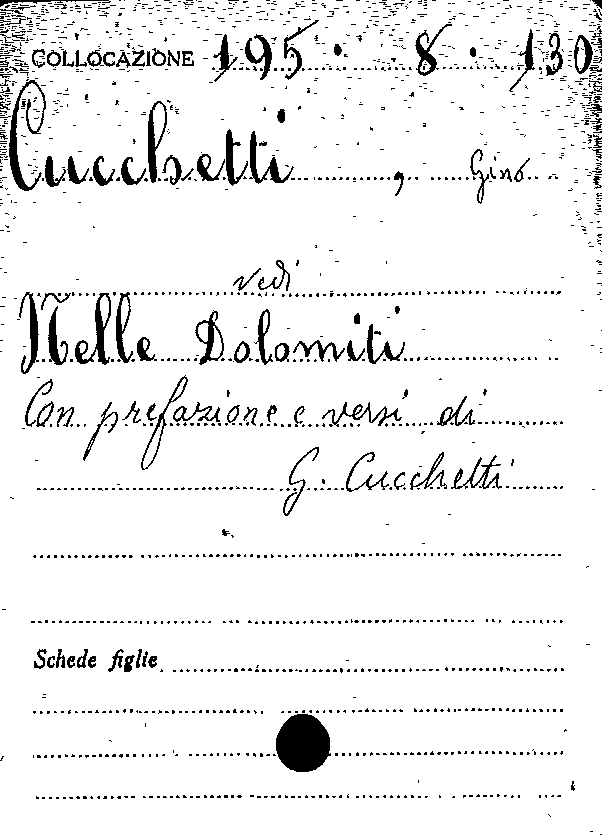 COLLOCAZIONE 195 . 8 . 130
Cucchetti , Gino
vedi
Nelle Dolomiti
Con prefazione e versi di
G. Cucchetti
Schede figlie